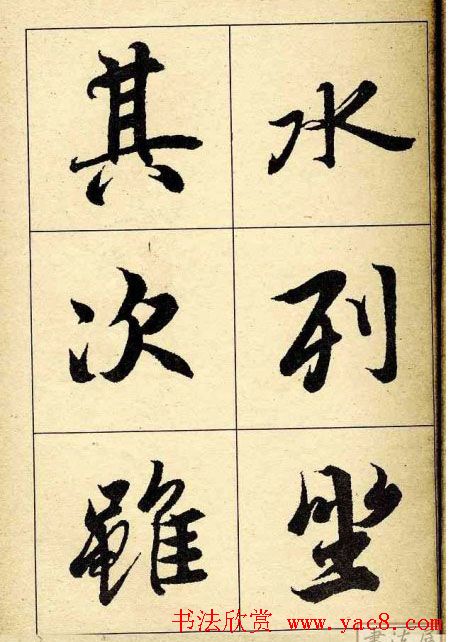 水列坐
其次雖
书法欣赏 www.yac8.com